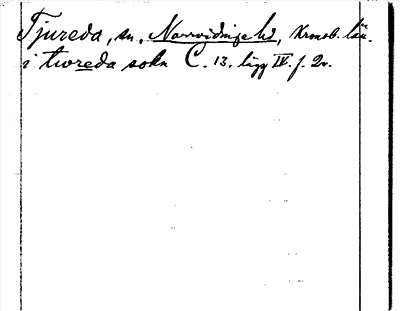 Tjureda, sn, Norrvidinge hd, Kronob. län.
i twreda sokn C. 13. lägg IV. f. 2v.